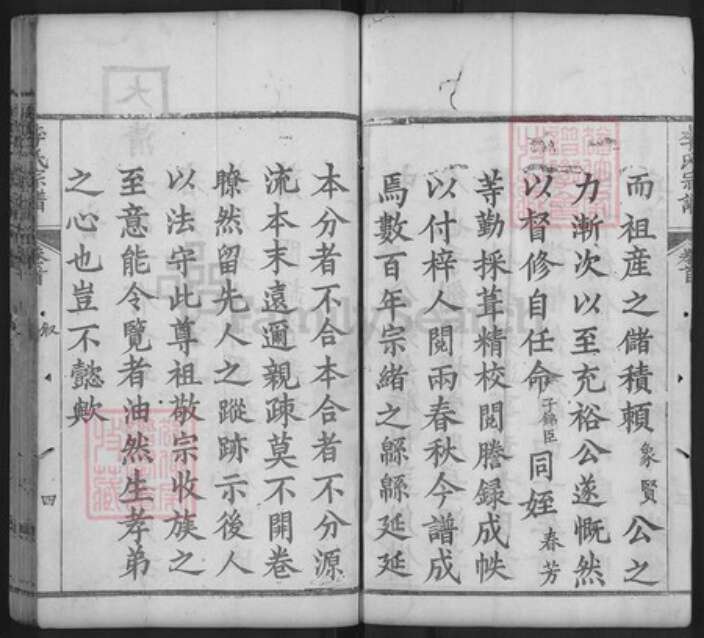 而祖產之儲積賴象賢公之
力漸次以至充裕公遂慨然
以督修自任命子錦臣同姪春芳
等勤採葺精校閱謄録成帙
以付梓人閱兩春秋今譜成
焉數百年宗緒之緜緜延延
本分者不合本合者不分源
流本末遠邇親疎莫不開卷
瞭然留先人之蹤跡示後人
以法守此尊祖敬宗收族之
至意能令覽者油然生孝弟
之心也豈不懿歟
李氏宗譜
卷首
叙
四
FamilySearch